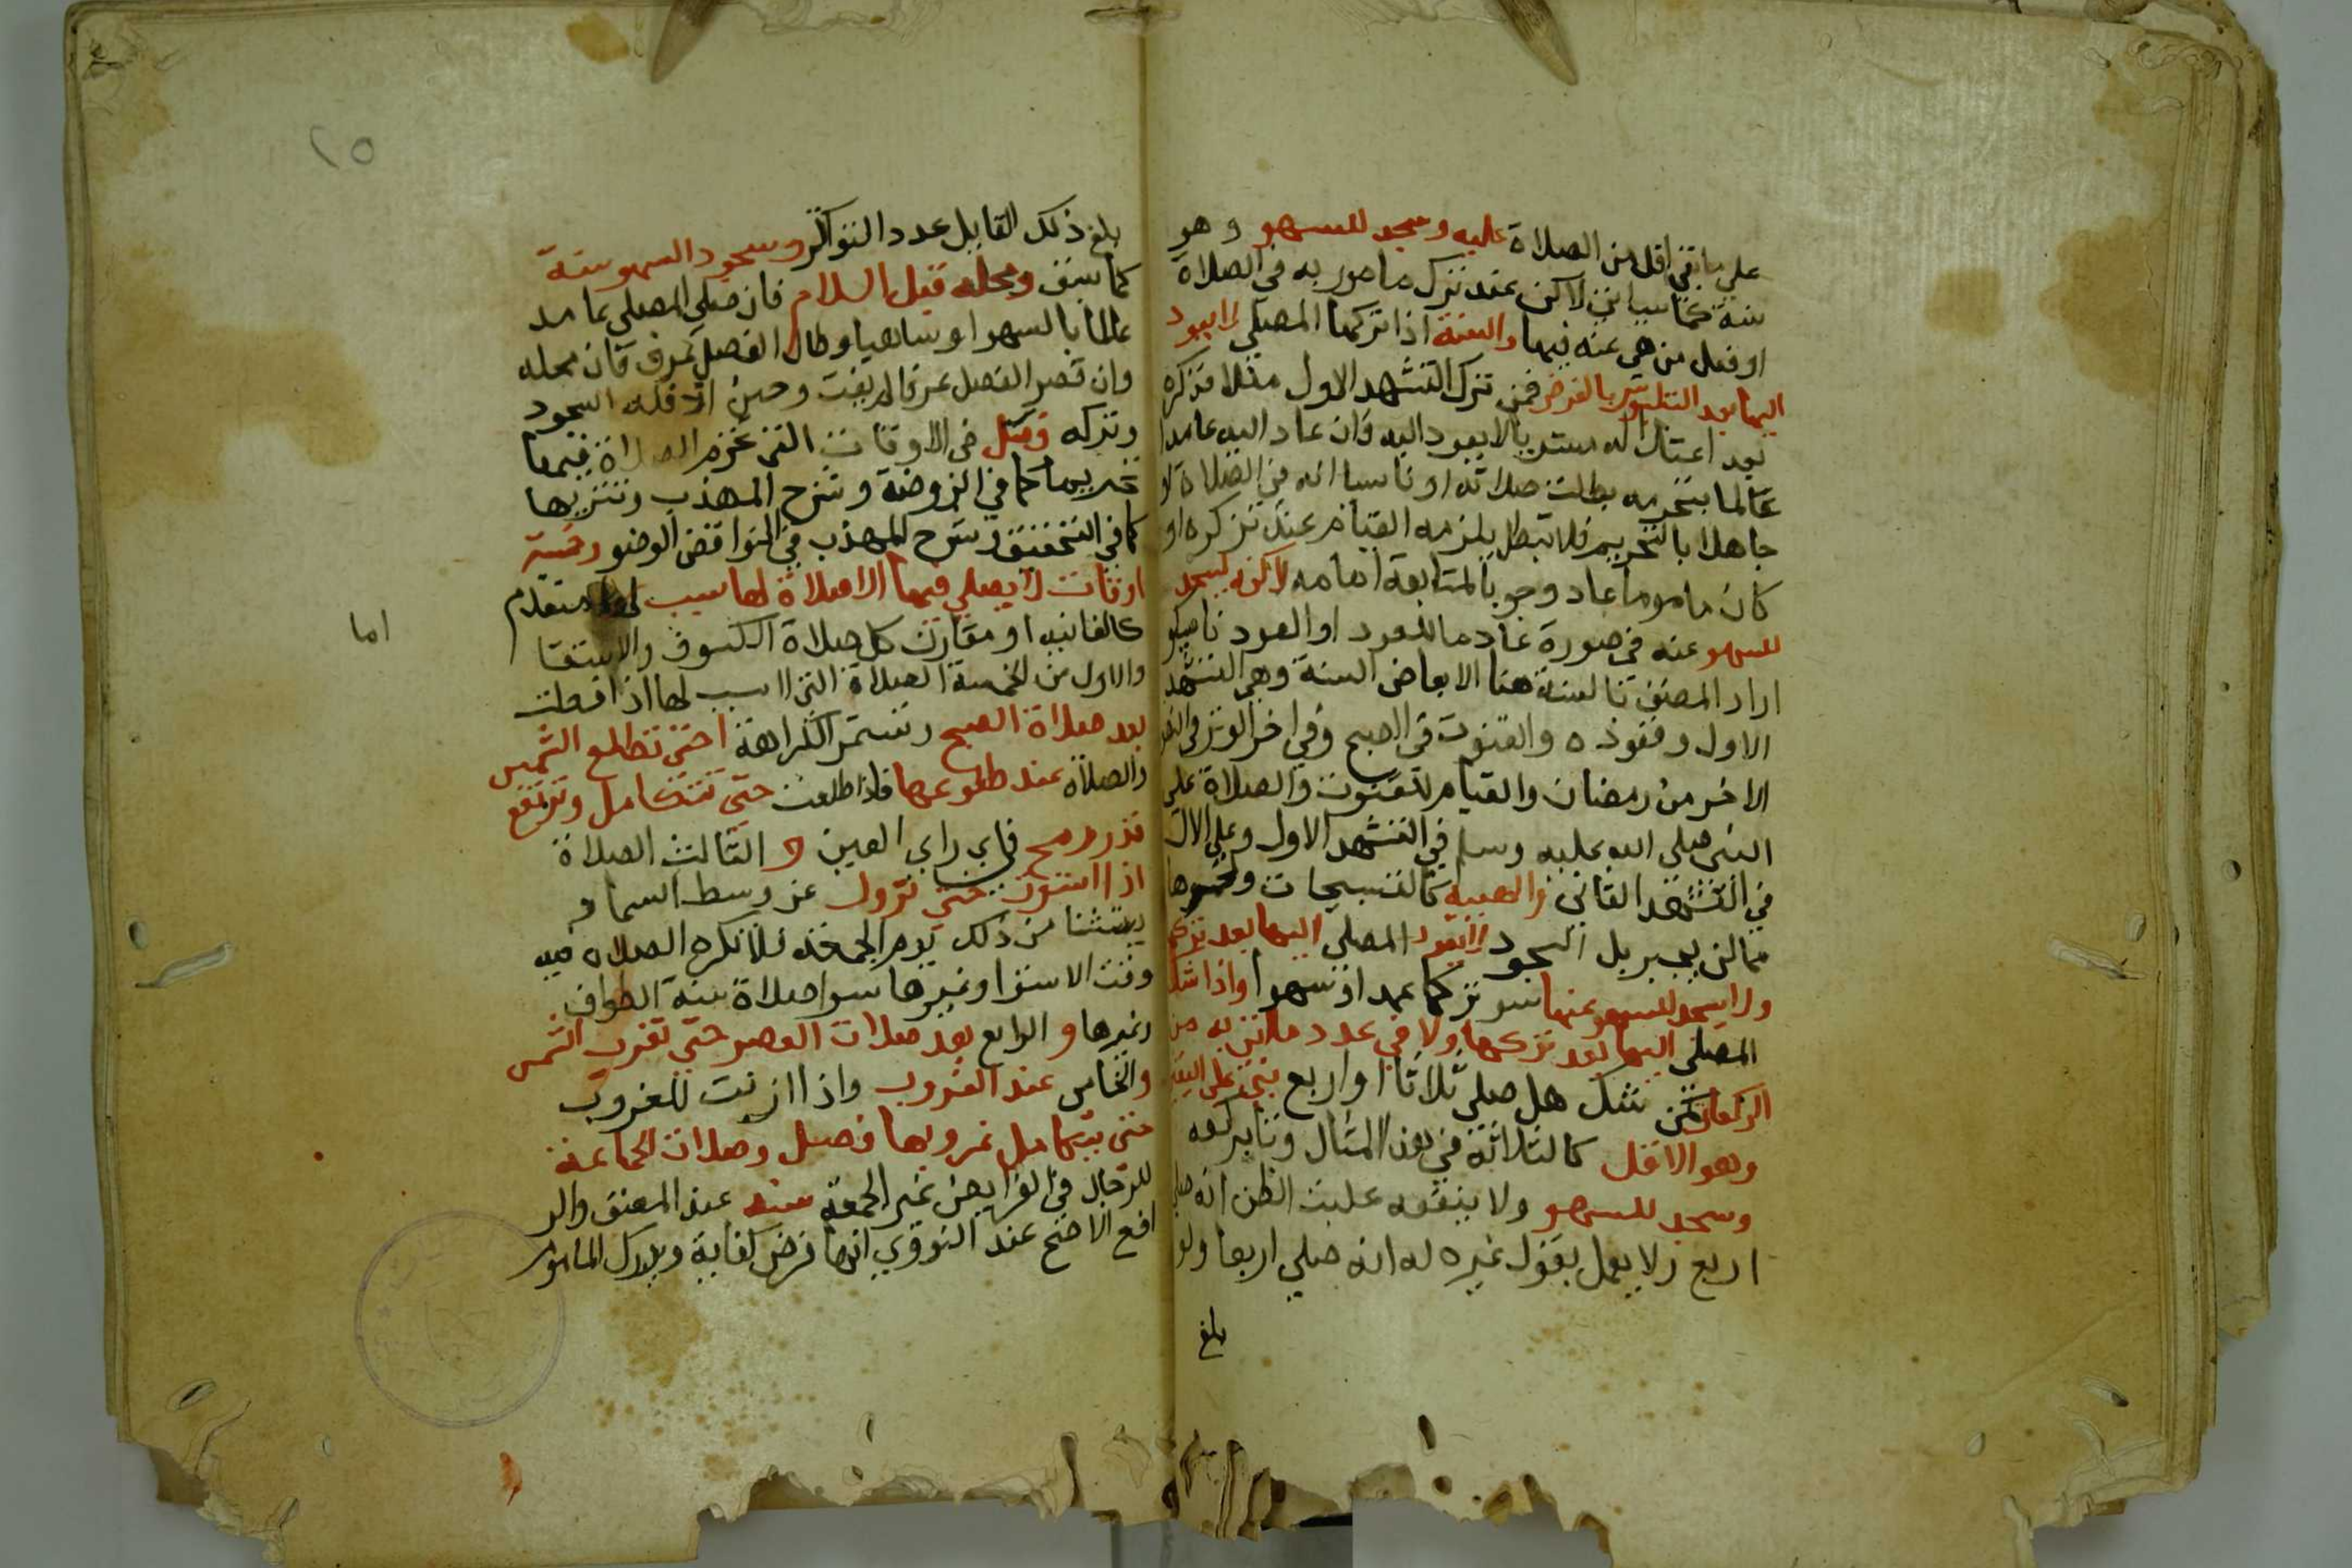 على ما بقي اقل من الصلاة عليه وسجد للسهو وهو
سنة كما سياتي لاكن عند ترك مامور به في الصلاة
او فعل منهي عنه فيها والسنة اذا تركها المصلي لا يعود
اليها بعد التلبس بالفرض فمن ترك التشهد الاول مثلا فذكره
بعد اعتداله مستويا لا يعود اليه فان عاد اليه عامدا
عالما بتحريمه بطلت صلاته او ناسيا انه في الصلاة او
جاهلا بالتحريم فلا تبطل يلزمه القيام عند تذكره او
كان ماموما عاد وجوبا لمتابعة امامه لاكنه يسجد
للسهو عنه في صورة عدم العود او العود ناسيا و
اراد المصنف بالسنة هنا الابعاض الستة وهي التشهد
الاول وقعوده والقنوت في الصبح وفي اخر الوتر في النصف
الاخر من رمضان والقيام للقنوت والصلاة على
النبي صلى الله عليه وسلم في التشهد الاول وعلى الال
في التشهد الثاني والهيية كالتسبيحات ونحوها
مما لن يجبر بل السجود لا يعود المصلي اليها بعد تركها
ولا سجد للسهو عنها سو تركها عمدا او سهوا واذا شك
المصلي اليها بعد تركها ولا في عدد ما اتى به من
الركعات كمن شك هل صلى ثلاثا او اربع بنى على اليقين
وهو الاقل كالثلاثة في هذا المثال وياتي بركعه
وسجد للسهو ولا ينفعه غلبت الظن انه صلى
اربع ولا يعمل بقول غيره له انه صلى اربعا ولو
بلغ
١٥
بلغ ذلك القايل عدد التواتر وسجود السهو سنة
كما سبق ومحله قبل السلام فان صلى المصلي عامد
عالما بالسهو او ساهيا وطال الفصل عرف فان محله
وان قصر الفصل عرفا لم يفت وحين اذ فله السجود
وتركه فصل في الاوقات التي تحرم الصلاة فيها
تحريما كما في الروضة وشرح المهذب وتنزيها
كما في التحقيق وشرح المهذب في النواقض الوضو وخمسة
اوقات لا يصلي فيها الا صلاة لها سبب متقدم
كالفايته او مقارن كل صلاة الكسوف والاستسقا
والاول من الخمسة الصلاة التي لا سبب لها اذا فعلت
بعد صلاة الصبح وتستمر الكراهة حتى تطلع الشمس
والصلاة عند طلوعها فاذا طلعت حتى تتكامل وترتفع
قدر رمح في راي العين والثالث الصلاة
اذا استوت حتى تزول عن وسط السما و
يستثنا من ذلك يوم الجمعة فلا تكره الصلاة فيه
وقت الاستوا وغيرها سوا صلاة سنة الطواف
وغيرها والرابع بعد صلات العصر حتى تغرب الشمس
والخامس عند الغروب واذا ازنت للغروب
حتى يتكامل غروبها فصل وصلات الجماعة
للرجال في الفرايض غير الجمعة سنه عند المصنف والر
افع الاصح عند النووي انها فرض كفاية ويدرك الماموم
اما